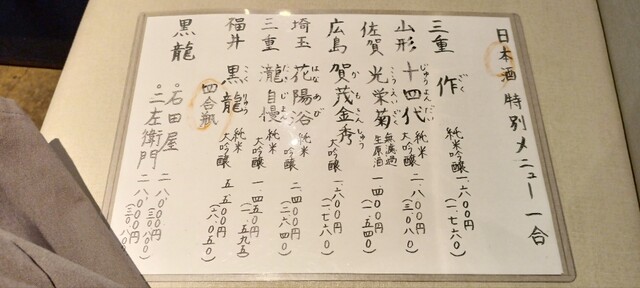 日本酒 特別メニュー 一合
三重 作 ざく 純米吟醸 一、六〇〇円 (一、七六〇)
山形 十四代 じゅうよんだい 純米大吟醸 二、八〇〇円 (三、〇八〇)
佐賀 光栄菊 こうえいぎく 無濾過生原酒 一、四〇〇円 (一、五四〇)
広島 賀茂金秀 かもきんしゅう 大吟醸 一、六〇〇円 (一、七六〇)
埼玉 花陽浴 はなあび 純米吟醸 二、四〇〇円 (二、六四〇)
三重 瀧自慢 たきじまん 大吟醸 一、四五〇円 (一、五九五)
福井 黒龍 こくりゅう 純米大吟醸 五、五〇〇円 (六、〇五〇)
四合瓶
黒龍 石田屋 二八、〇〇〇円 (三〇、八〇〇)
二左衛門 二八、〇〇〇円 (三〇、八〇〇)